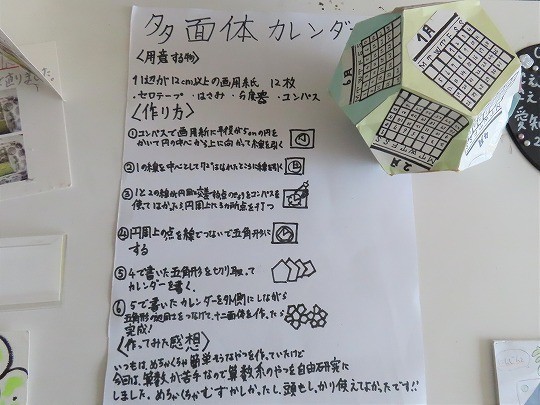 多面体カレンダー
〈用意する物〉
1辺が12cm以上の画用紙 12枚
・セロテープ ・はさみ ・分度器 ・コンパス
〈作り方〉
①コンパスで画用紙に半径が5cmの円を
かいて円の中心から上に向かって線を引く
②1の線を中心として72°はなれたところに線を引く
③1と2の線が円周に交差する点のきょりをコンパスを
使ってはかったら円周上に5カ所点を打つ
④円周上の点を線でつないで五角形に
する
⑤4で書いた五角形を切り取って
カレンダーを書く。
⑥5で書いたカレンダーを外側にしながら
五角形の辺同士をつなげて、十二面体を作ったら
完成!
〈作ってみた感想〉
いつもは、めちゃくちゃ簡単そうなやつを作っていたけど
今回は、算数が苦手なので算数系のやつを自由研究に
しました。めちゃくちゃむずかしかったし、頭もしっかり使えてよかったです!!
1月
2月